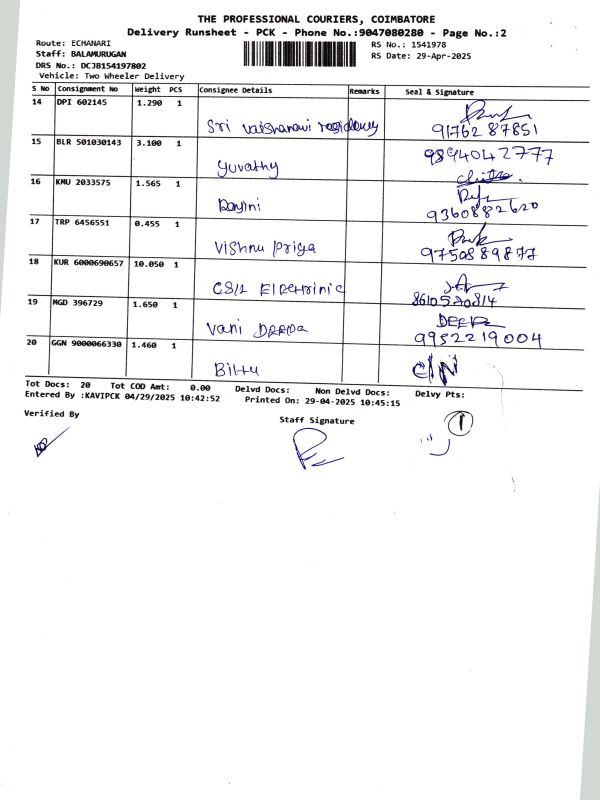 THE PROFESSIONAL COURIERS, COIMBATORE
Delivery Runsheet - PCK - Phone No.:9047080280 - Page No.:2
Route: ECHANARI RS No.: 1541978
Staff: BALAMURUGAN RS Date: 29-Apr-2025
DRS No.: DCJB154197802
Vehicle: Two Wheeler Delivery
S No Consignment No Weight PCS Consignee Details Remarks Seal & Signature
14 DPI 602145 1.290 1
Sri vaishnavi residency 91762 87851
15 BLR 501030143 3.100 1 9894042777
Yuvathy
16 KMU 2033575 1.565 1
Ranjini 9360882620
17 TRP 6456551 0.455 1
Vishnu Priya 9750889877
18 KUR 6000690657 10.050 1
8610520814
19 MGD 396729 1.650 1
Vani 9952219004
20 GGN 9000066330 1.460 1
Bittu C/N
Tot Docs: 20 Tot COD Amt: 0.00 Delvd Docs: Non Delvd Docs: Delvy Pts:
Entered By :KAVIPCK 04/29/2025 10:42:52 Printed On: 29-04-2025 10:45:15
Verified By Staff Signature 1